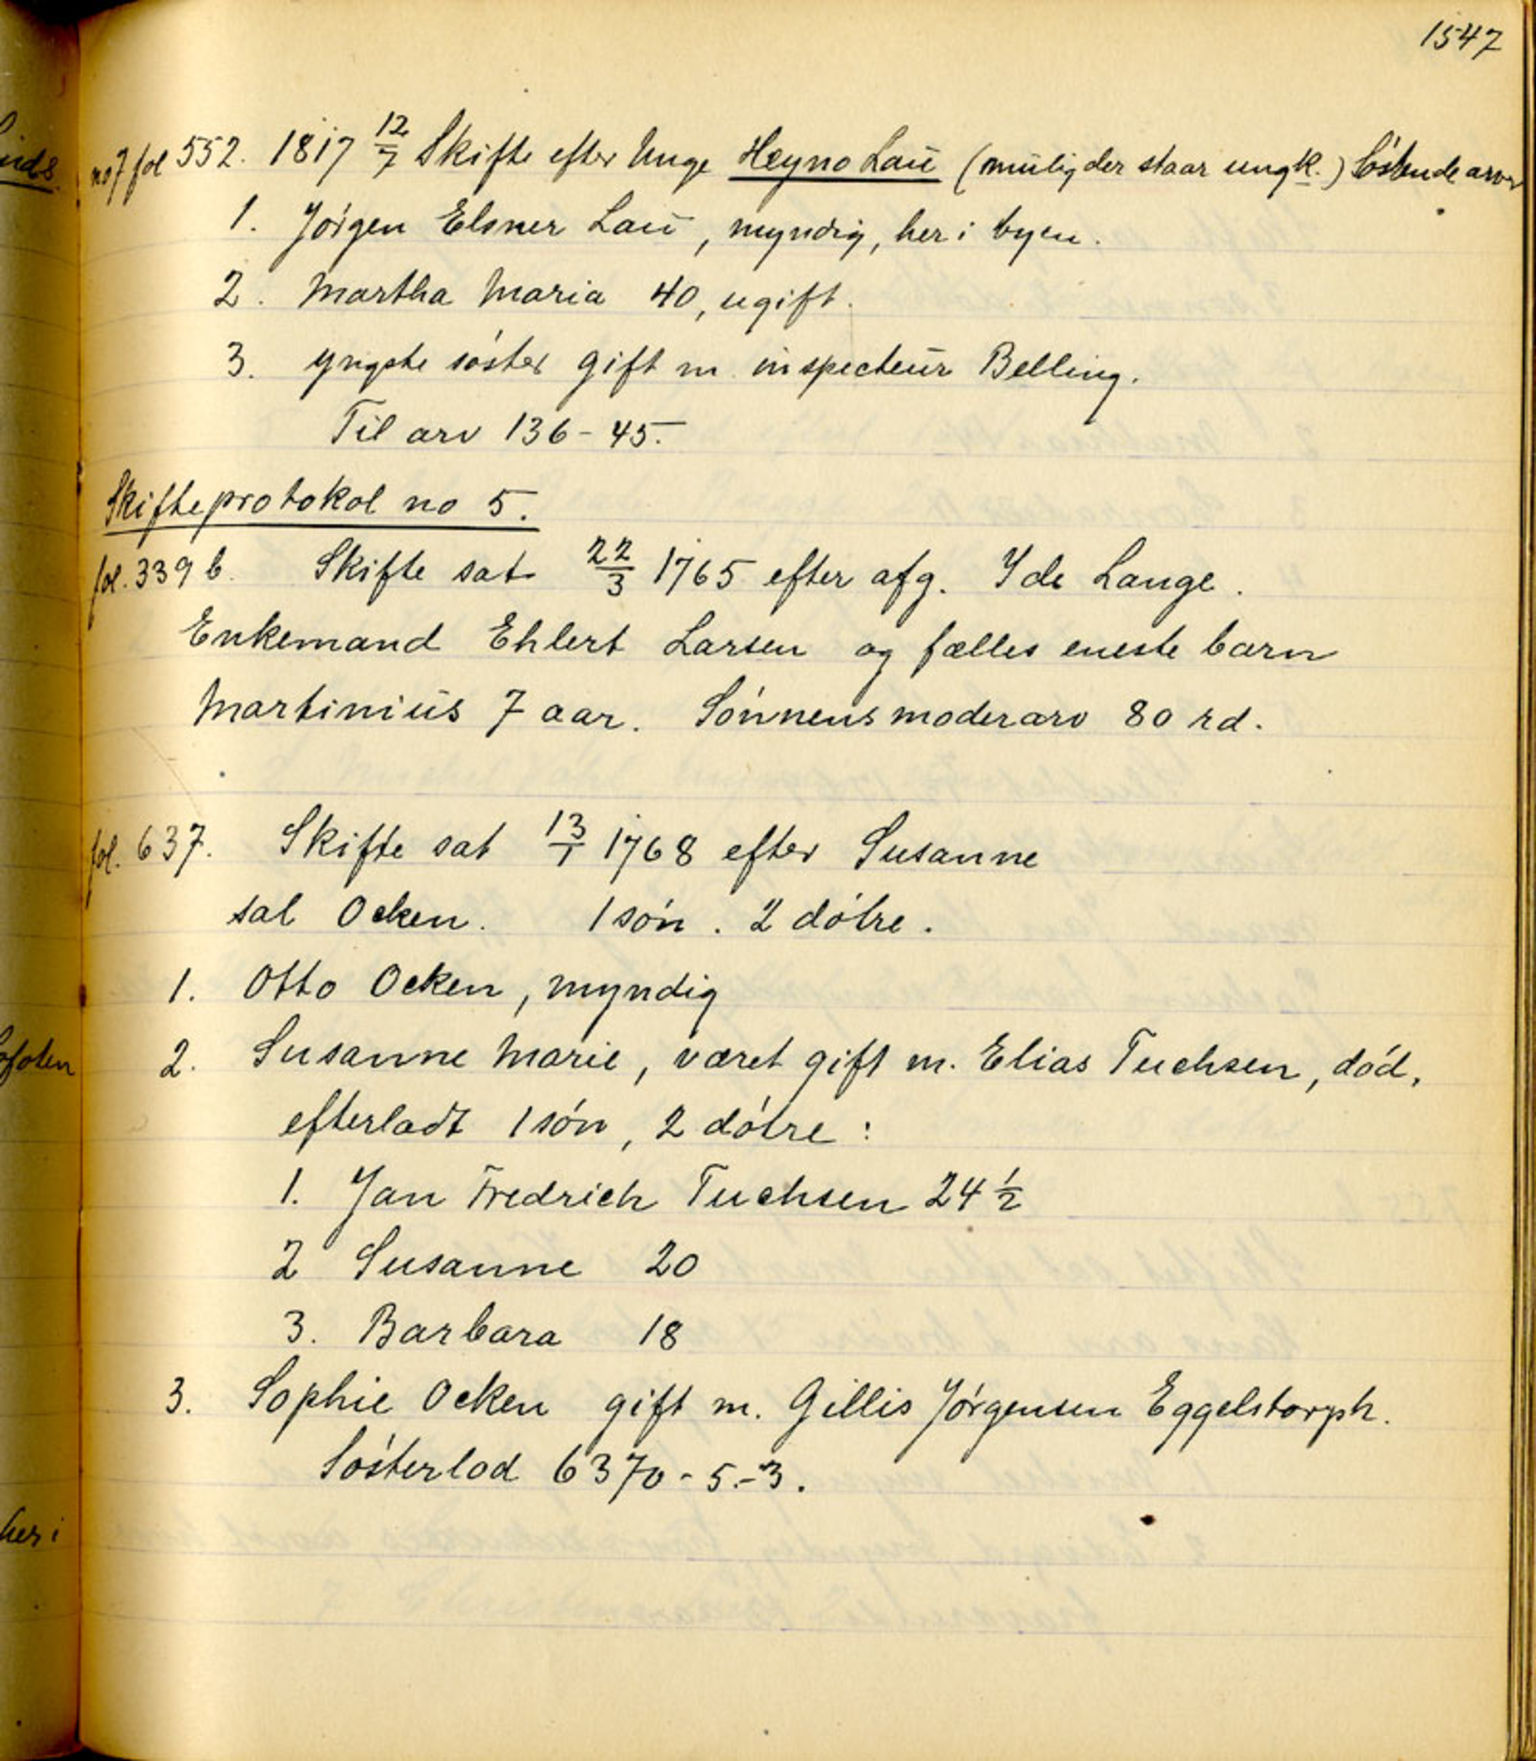 1547
no 7 fol 552. 1817 12/7 Skifte efter Unge Heyno Laŭ (mulig der staar ungk.) Söskende arver
1. Jörgen Elsner Laŭ, myndig, her i byen.
2. Martha Maria 40, ugift.
3. yngste söster gift m. inspecteur Belling.
Til arv 136-45.
Skifteprotokol no 5.
fol. 339 b. Skifte sat 22/3 1765 efter afg. Yde Lange.
Enkemand Ehlert Larsen og fælles eneste barn
Martinius 7 aar. Sönnens moderarv 80 rd.
fol. 637. Skifte sat 13/1 1768 efter Susanne
sal Ocken. 1 sön. 2 dötre.
1. Otto Ocken, myndig
2. Susanne Marie, været gift m. Elias Tuchsen, död,
efterladt 1 sön, 2 dötre:
1. Jan Fredrich Tuchsen 24 1/2
2 Susanne 20
3. Barbara 18
3. Sophie Ocken gift m. Gillis Jörgensen Eggelstorph.
Sösterlod 6370-5-3.
ofoten
her i